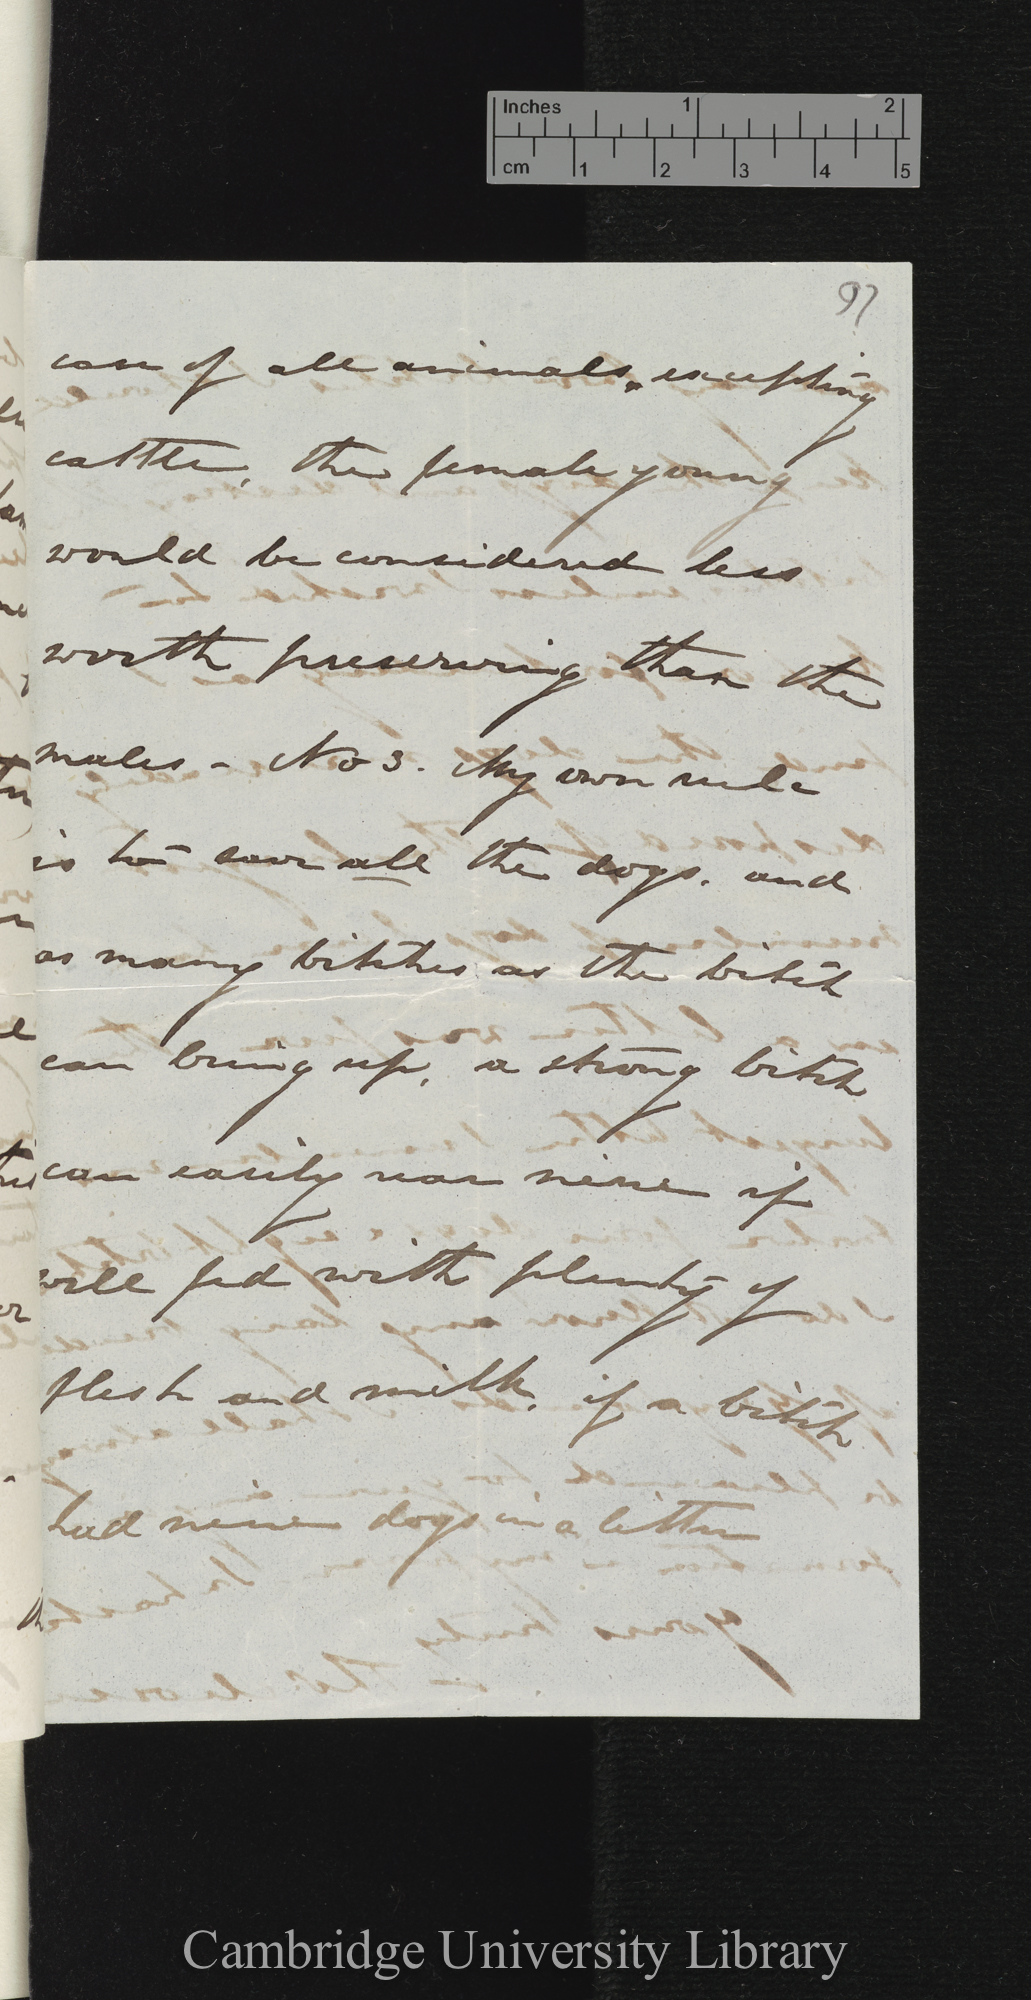 Inches 1 2
cm 1 2 3 4 5
97
case of all animals, excepting
cattle, the female young
would be considered less
worth preserving than the
males - No 3. My own rule
is to save all the dogs. and
as many bitches as the bitch
can bring up, a strong bitch
can easily rear nine if
well fed with plenty of
flesh and milk, if a bitch
had nine dogs in a litter
Cambridge University Library